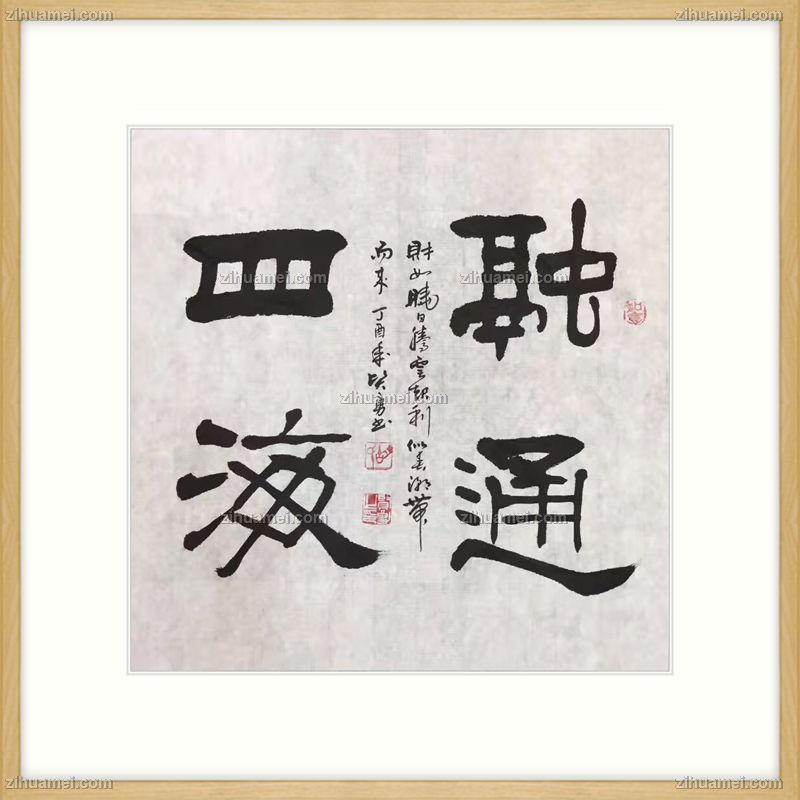 zihuamei.com
zihuamei.com
融通
財如曉日騰雲起利似春潮帶
雨来 丁酉年
四海
zihuamei.com
zihuamei.com
zihuamei.com
zihuamei.com
zihuamei.com
zihuamei.com
zihuamei.com